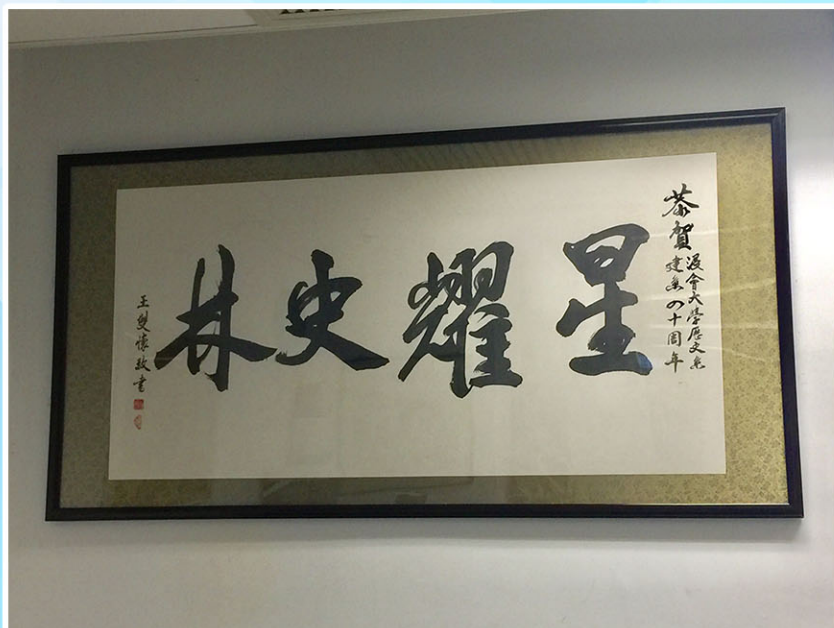 恭賀
浸會大學歷史系
建系四十周年
星耀史林
王雙懷敬書